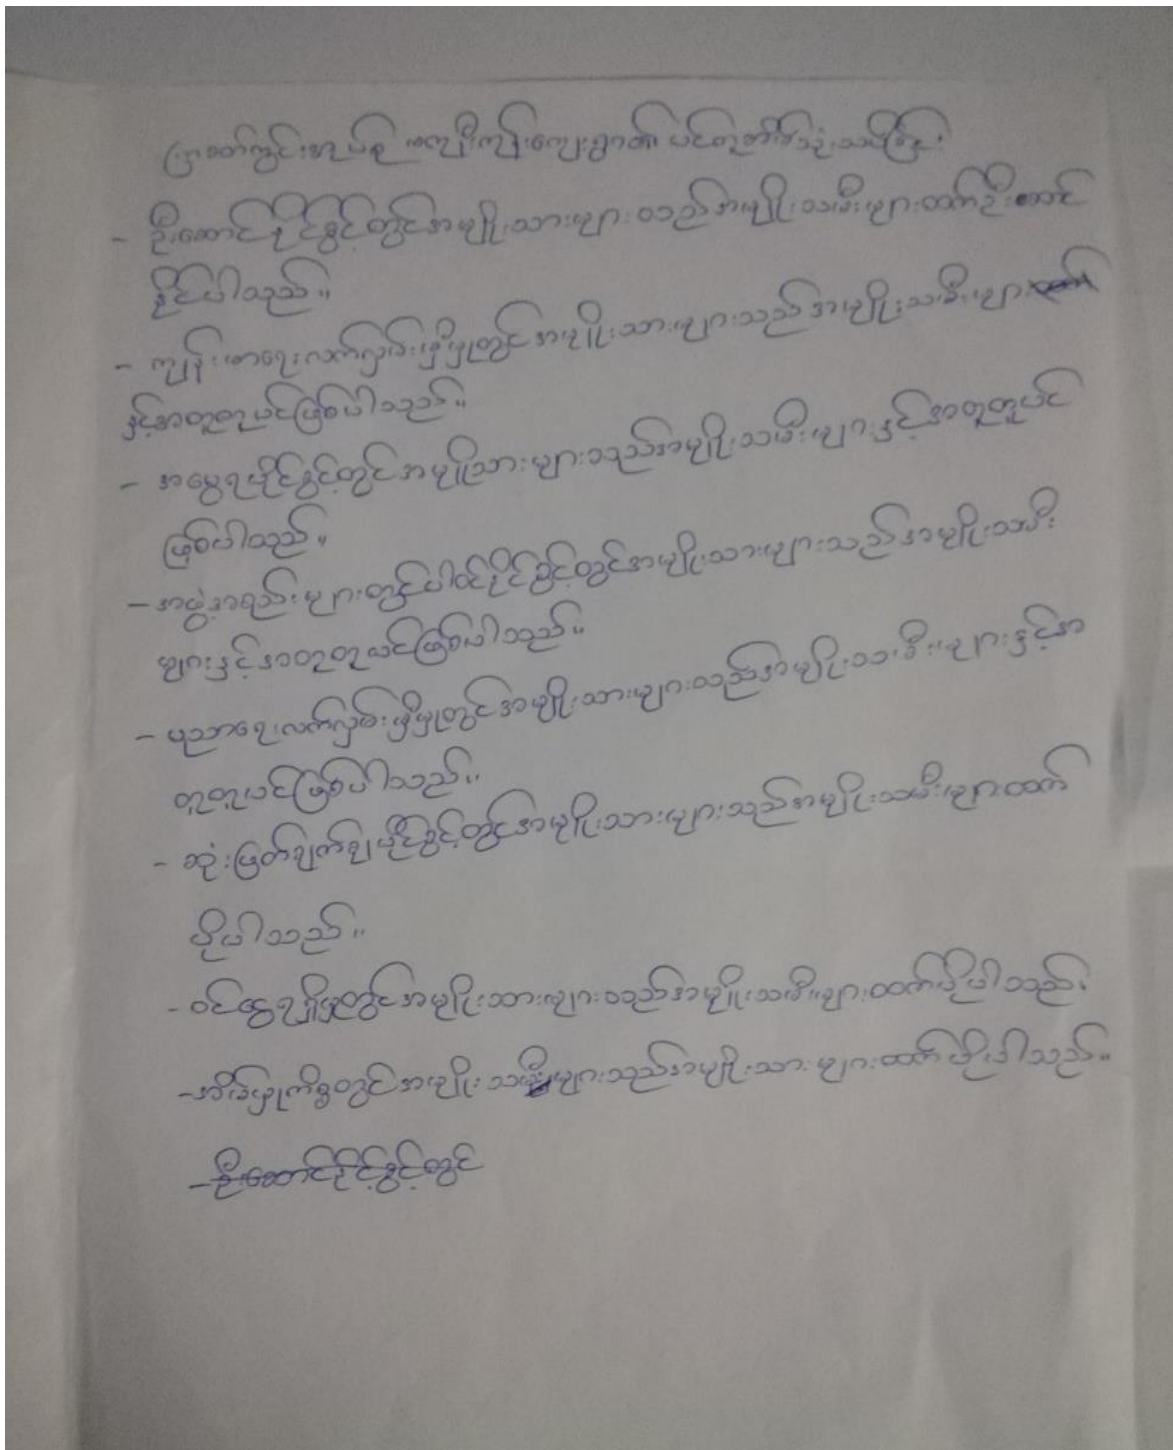 ကျေးရွာ၏
- ဦးဆောင်နိုင်ခွင့်တွင်အမျိုးသားများသည်အမျိုးသမီးများထက်ဦးဆောင်
နိုင်ပါသည်။
- ကျန်းမာရေးလက်လှမ်းမှီမှုတွင်အမျိုးသားများသည်အမျိုးသမီးများထက်
နှင့်အတူတူပင်ဖြစ်ပါသည်။
- အမွေရပိုင်ခွင့်တွင်အမျိုးသားများသည်အမျိုးသမီးများနှင့်အတူတူပင်
ဖြစ်ပါသည်။
- အဖွဲ့အစည်းများတွင်ပါဝင်နိုင်ခွင့်တွင်အမျိုးသားများသည်အမျိုးသမီး
များနှင့်အတူတူပင်ဖြစ်ပါသည်။
- ပညာရေးလက်လှမ်းမှီမှုတွင်အမျိုးသားများသည်အမျိုးသမီးများနှင့်အ
တူတူပင်ဖြစ်ပါသည်။
- ဆုံးဖြတ်ချက်ချပိုင်ခွင့်တွင်အမျိုးသားများသည်အမျိုးသမီးများထက်
ပိုပါသည်။
- ဝင်ငွေရရှိမှုတွင်အမျိုးသားများသည်အမျိုးသမီးများထက်ပိုပါသည်။
- အိမ်မှုကိစ္စတွင်အမျိုးသမီးများသည်အမျိုးသားများထက်ပိုပါသည်။
- ဦးဆောင်နိုင်ခွင့်တွင်